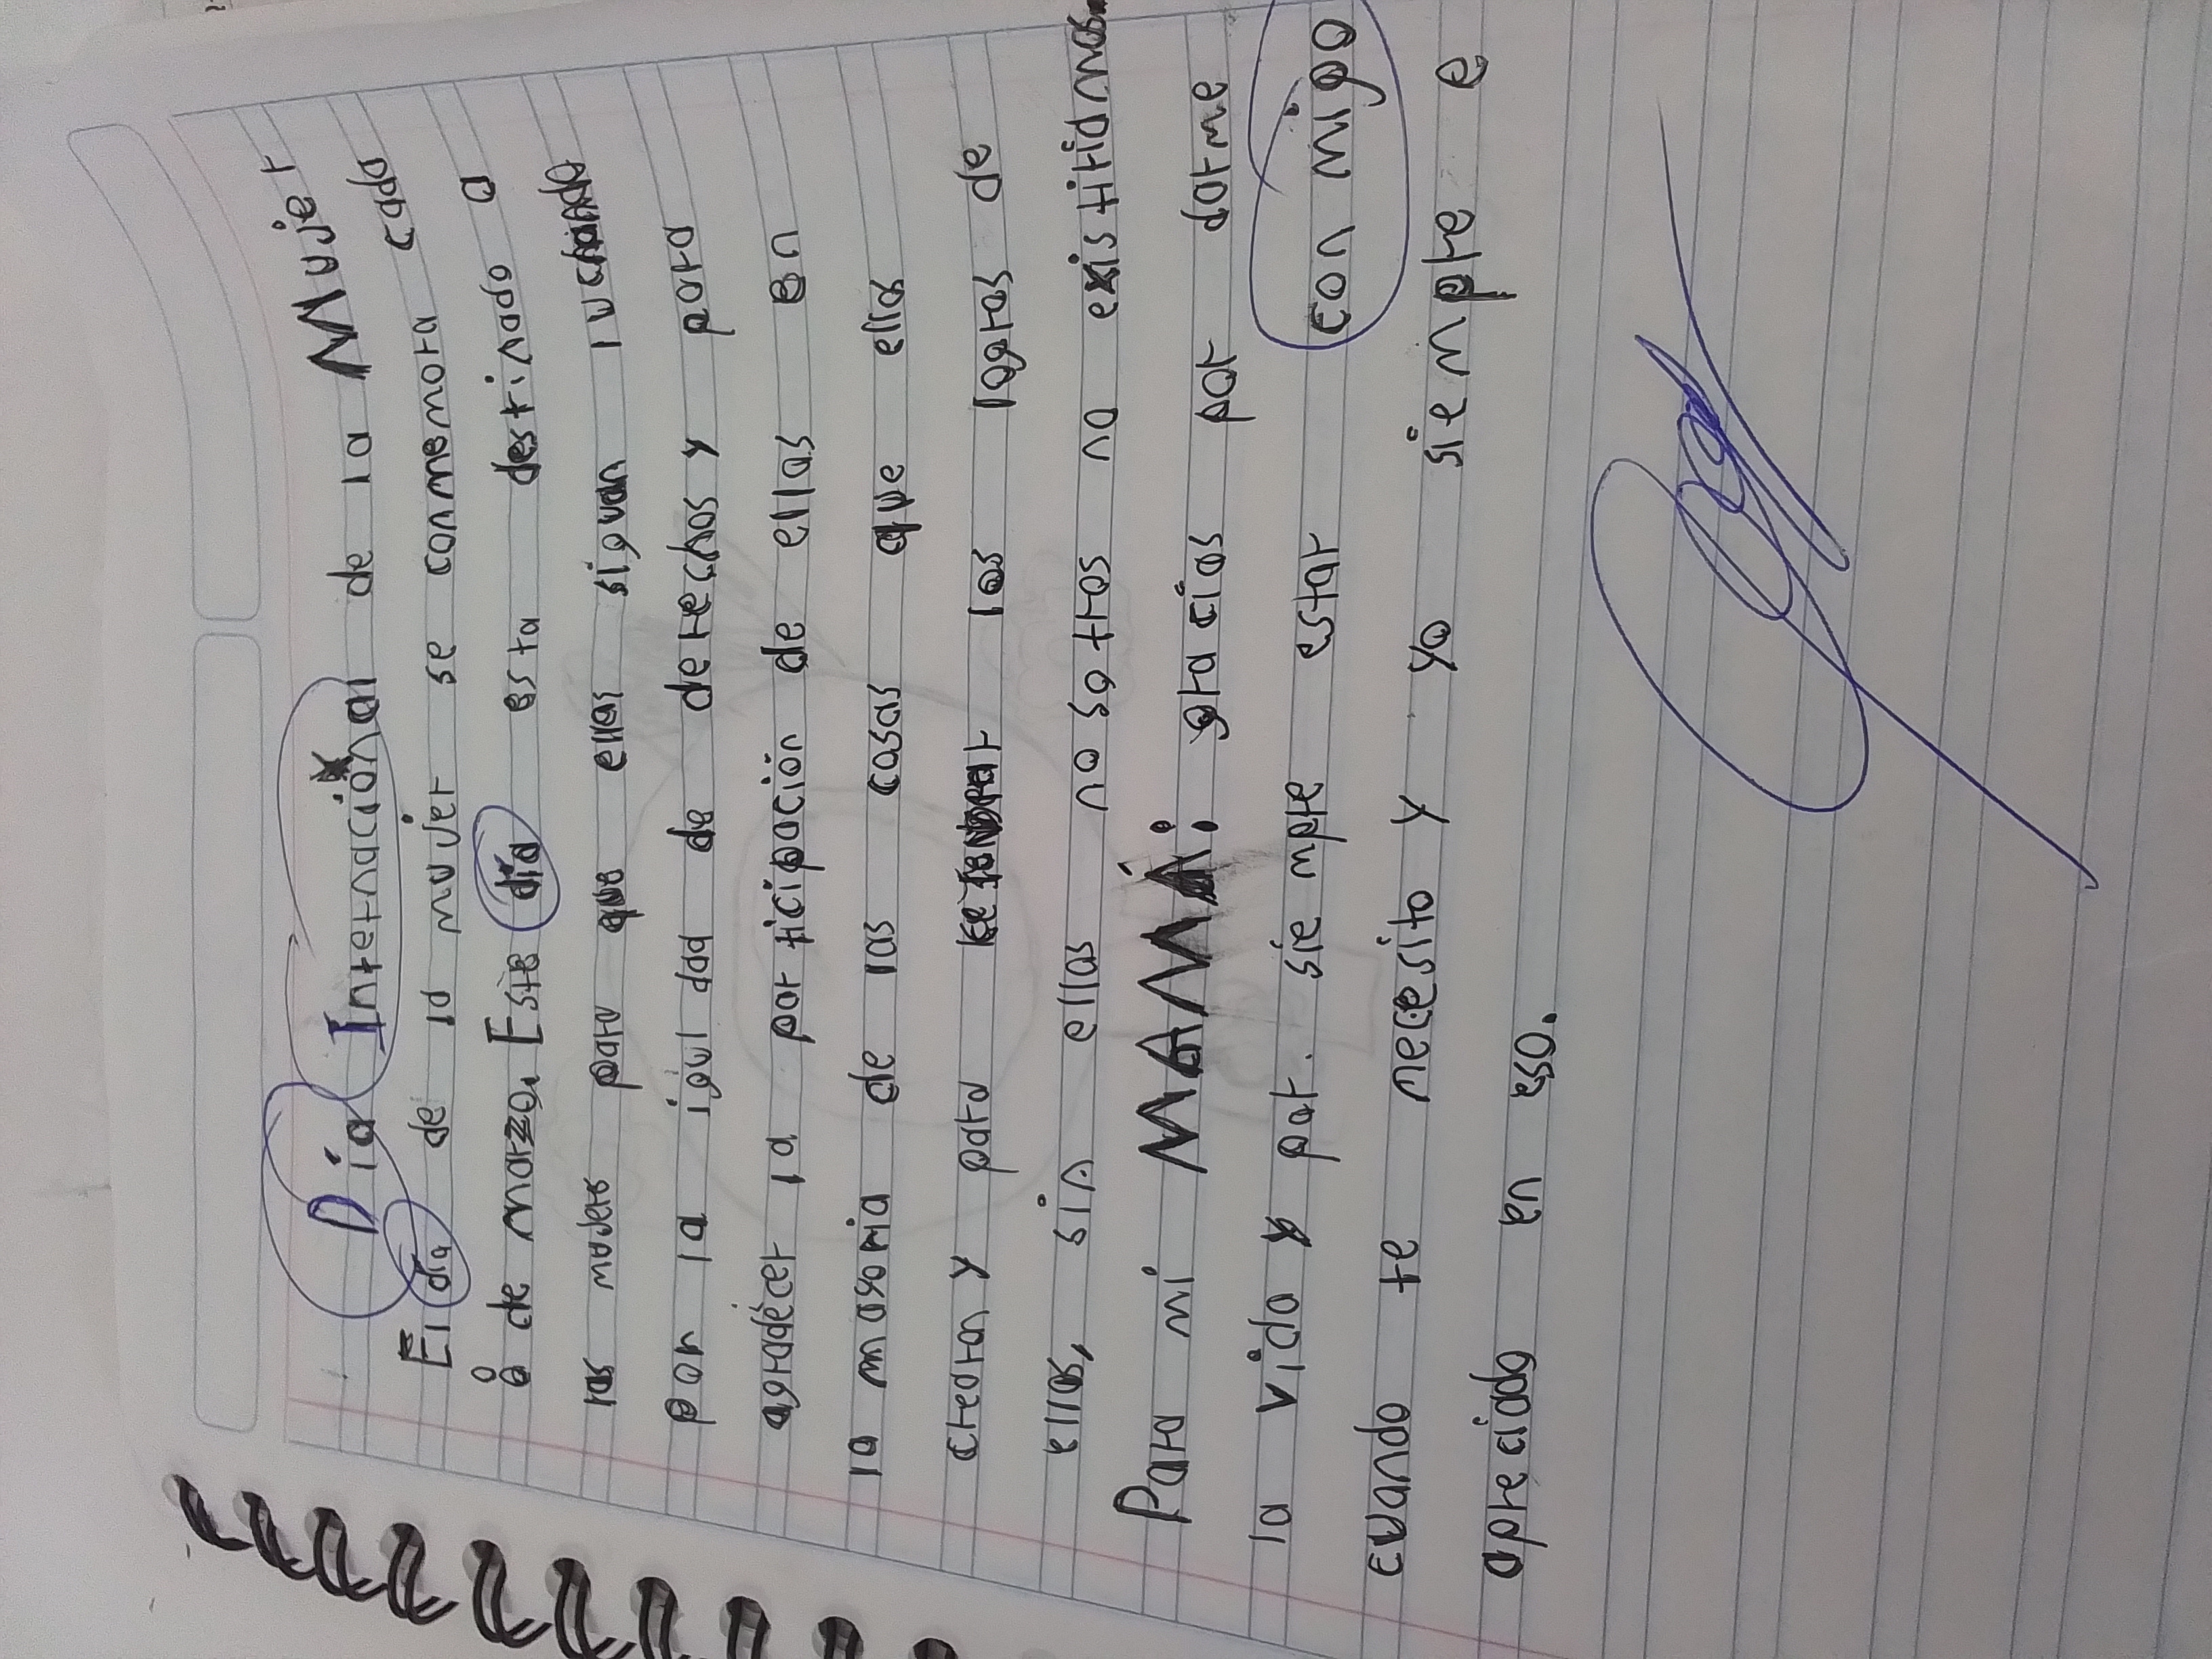 Día Internacional de la Mujer
El día de la mujer se conmemora cada
8 de marzo. Este día esta destinado a
las mujers para que ellas siguan luchando
por la igul dad de derechos y para
agradécer la participación de ellas en
la mayoria de las cosas que ellas
crearon y para los logros de
ellas, sin ellas nosotros no existitidmos.
Para mi MAMÁ: gracias por darme
la vida y por siempre estar con migo
cuando te necesito y yo siempre e
apreciado en eso.